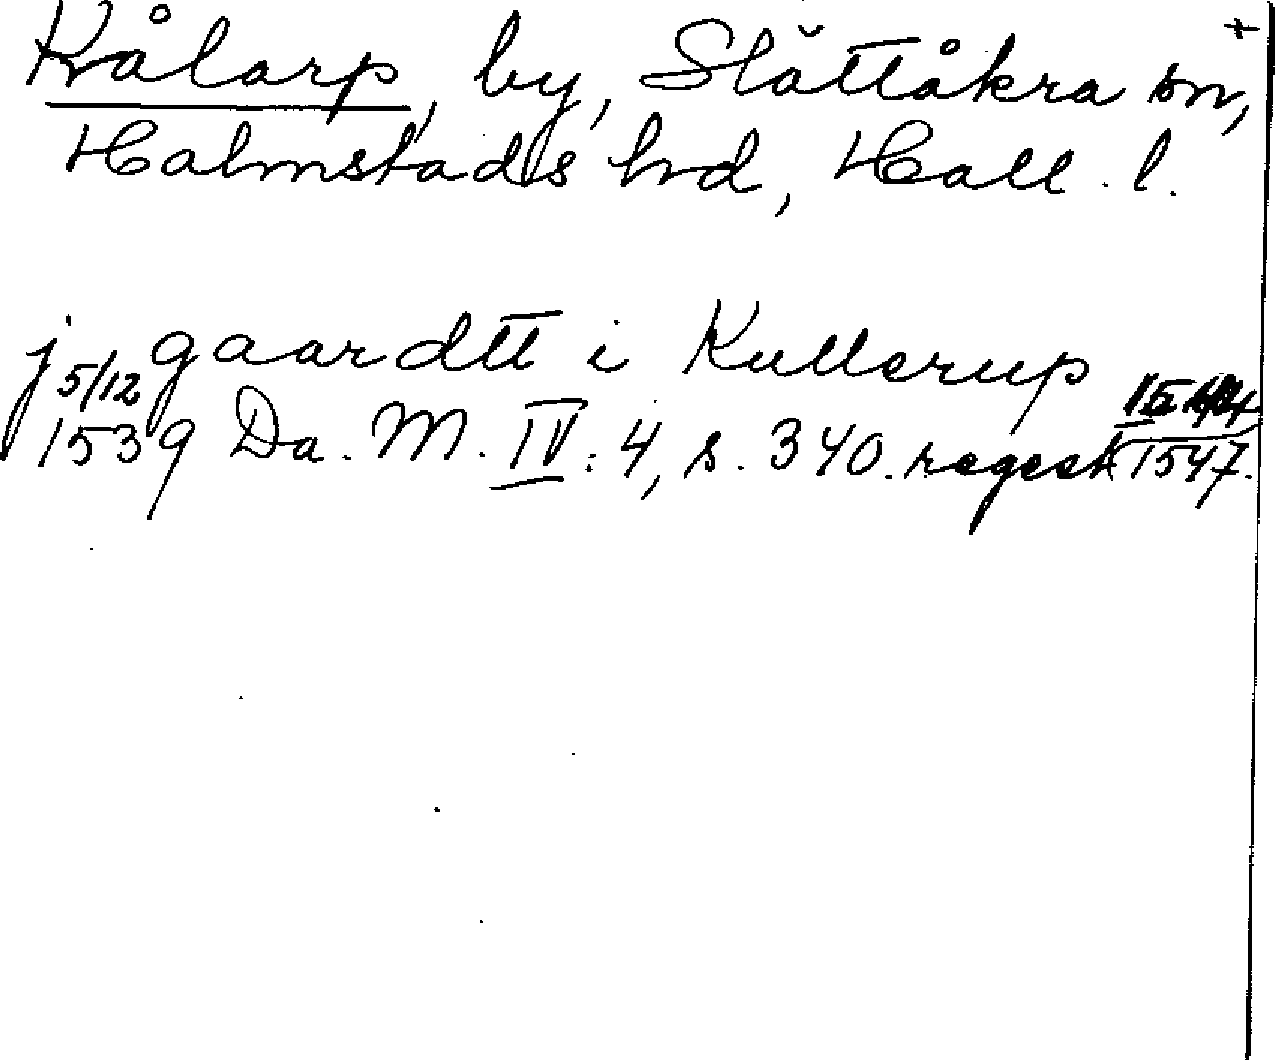 +
Kålarp, by, Slättåkra sn,
Halmstads hd, Hall. l.
j gaardtt i Kullerup
5/12 1539 Da. M. IV: 4, s. 340. regest 1547.